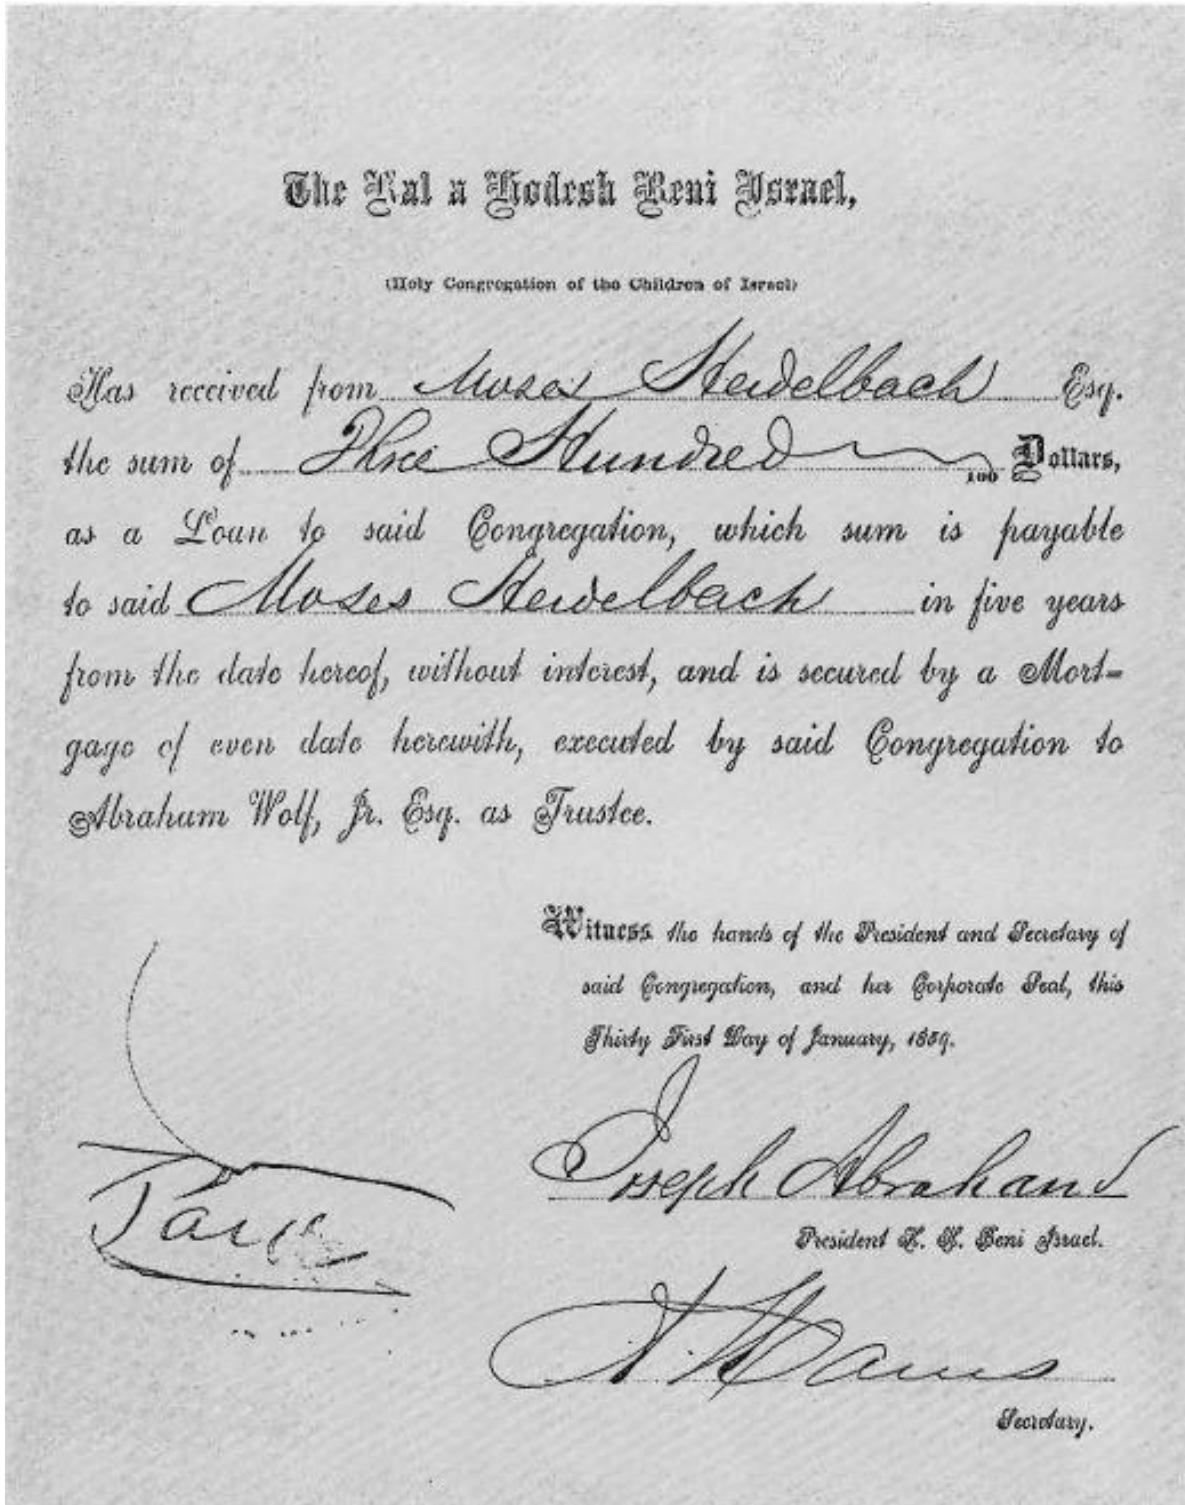 The Kal a Kodesh Beni Israel,
(Holy Congregation of the Children of Israel)
Has received from Moses Heidelbach Esq.
the sum of Three Hundred 100 Dollars,
as a Loan to said Congregation, which sum is payable
to said Moses Heidelbach in five years
from the date hereof, without interest, and is secured by a Mort-
gage of even date herewith, executed by said Congregation to
Abraham Wolf, Jr. Esq. as Trustee.
Witness the hands of the President and Secretary of
said Congregation, and her Corporate Seal, this
Thirty First Day of January, 1859.
Joseph Abraham
President K. K. Beni Israel.
Secretary.